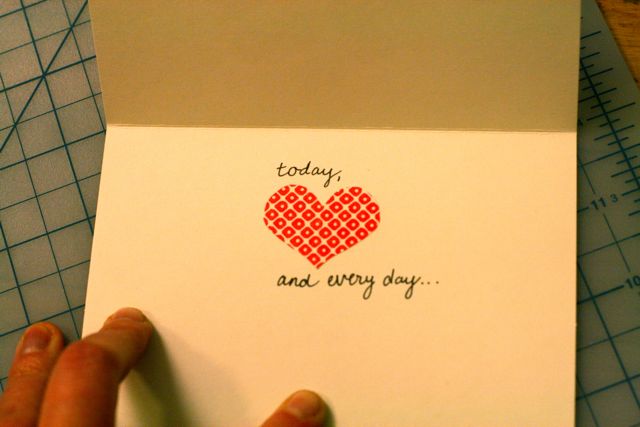 today,
and every day...
11 3
10